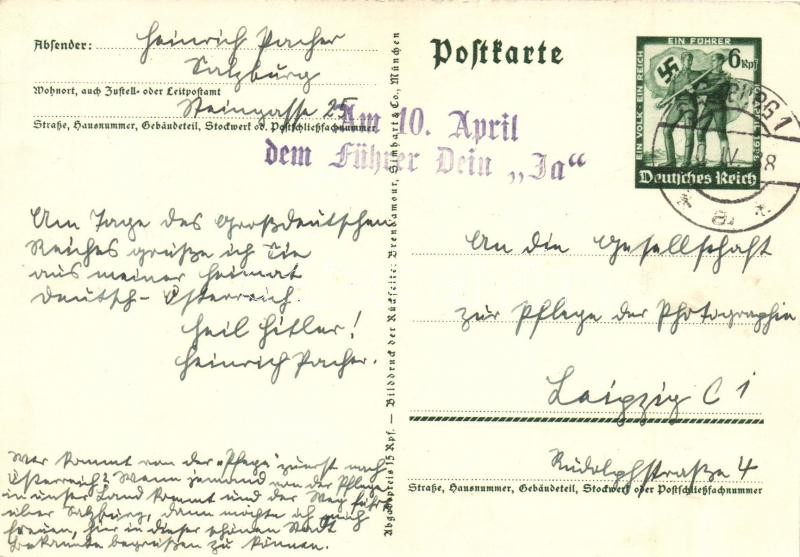 Absender: Heinrich Pacher
Salzburg
Wohnort, auch Zustell- oder Leitpostamt
Steingasse 25
Straße, Hausnummer, Gebäudeteil, Stockwerk od. Postschließfachnummer
Postkarte
EIN FÜHRER
EIN VOLK · EIN REICH
6 Rpf
Deutsches Reich
BURG 1
a
Am 10. April
dem Führer Dein „Ja“
Am Tage des Großdeutschen
Reiches grüße ich Sie
aus meiner Heimat
Deutsch-Österreich.
Heil Hitler!
Heinrich Pacher.
Wer kommt von der "Pflege" zuerst nach
Österreich? Wenn jemand von der Pflege
in unser Land kommt und der Weg führt
über Salzburg, dann möchte ich mich
freuen, hier in dieser schönen Stadt
Bekannte begrüßen zu können.
Abgabepreis 15 Rpf. — Bilddruck der Rückseite: Brend'amour, Simhart & Co., München
An die Gesellschaft
zur Pflege der Photographie
Leipzig C 1
Rudolphstraße 4
Straße, Hausnummer, Gebäudeteil, Stockwerk oder Postschließfachnummer